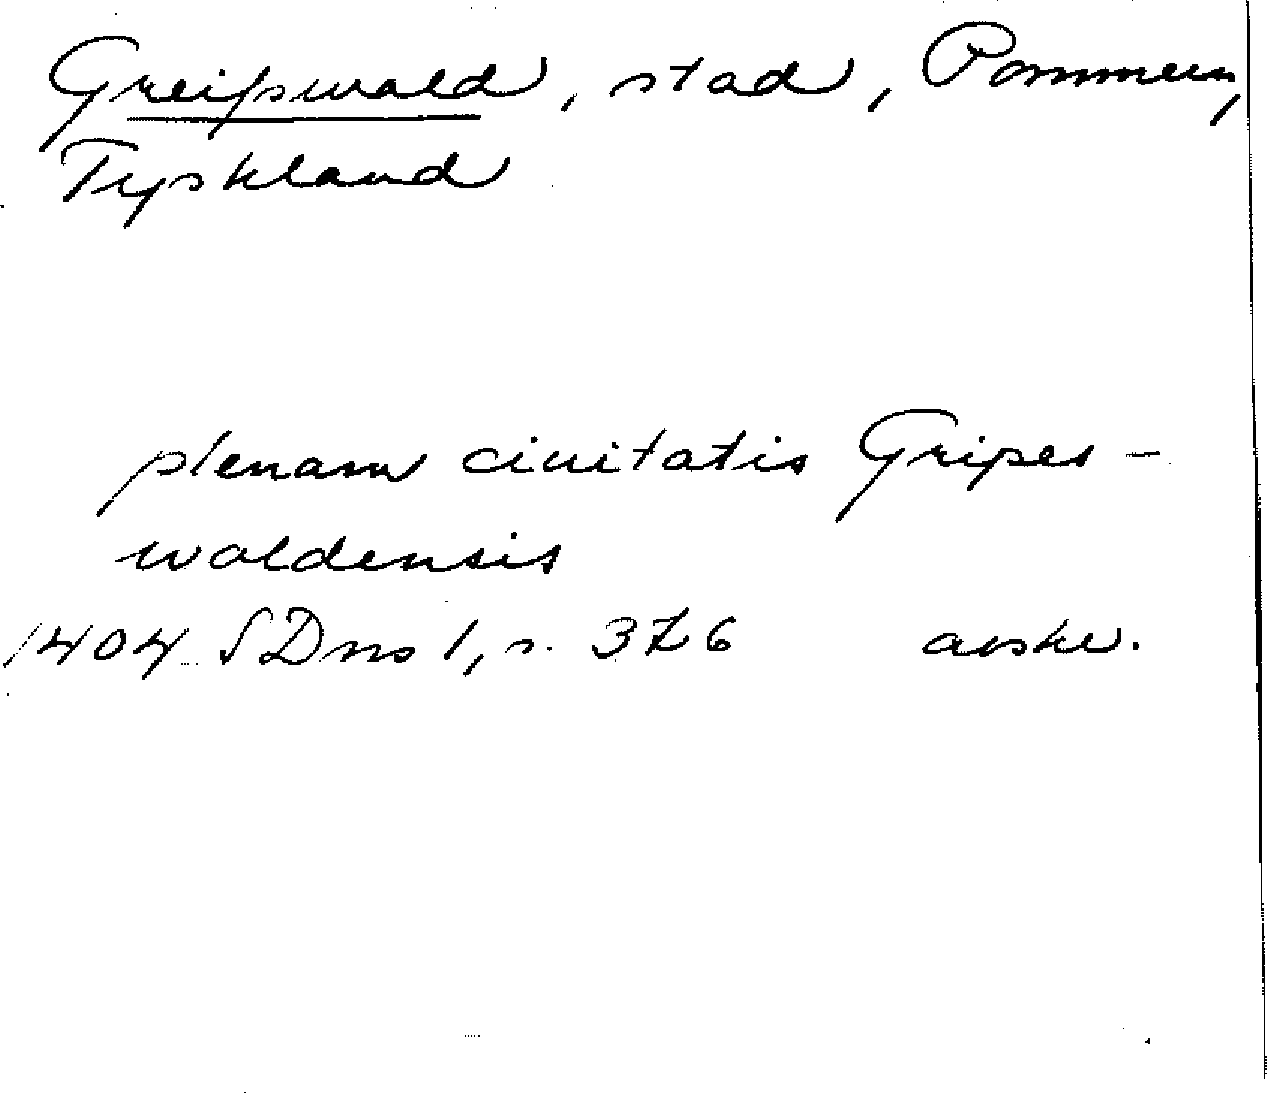 Greifswald, stad, Pommern,
Tyskland
plenam ciuitatis Gripes-
waldensis
1404 SDns 1, s. 376 avskr.